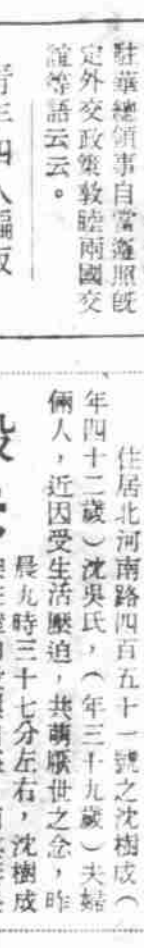 駐華總領事自當遵照旣
定外交政策敦睦兩國交
誼等語云云。
住居北河南路四百五十一號之沈樹成（
年四十二歲）沈吳氏，（年三十九歲）夫婦
倆人，近因受生活壓迫，共萌厭世之念，昨
晨九時三十七分左右，沈樹成